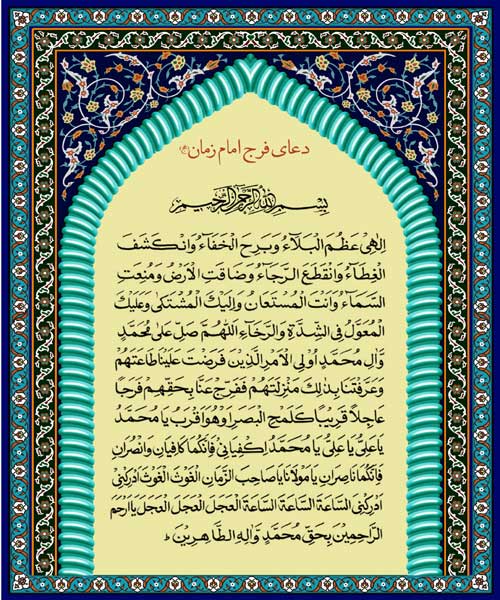 دعای فرج امام زمان
بِسْمِ اللهِ الرَّحْمٰنِ الرَّحِیْمِ
اِلٰهِی عَظُمَ الْبَلَاءُ وَبَرِحَ الْخَفَاءُ وَانْکَشَفَ
الْغِطَاءُ وَانْقَطَعَ الرَّجَاءُ وَضَاقَتِ الْاَرْضُ وَمُنِعَتِ
السَّمَاءُ وَاَنْتَ الْمُسْتَعَانُ وَاِلَیْکَ الْمُشْتَکٰی وَعَلَیْکَ
الْمُعَوَّلُ فِی الشِّدَّةِ وَالرَّخَاءِ اَللّٰهُمَّ صَلِّ عَلٰی مُحَمَّدٍ
وَاٰلِ مُحَمَّدٍ اُولِی الْاَمْرِ الَّذِیْنَ فَرَضْتَ عَلَیْنَا طَاعَتَهُمْ
وَعَرَّفْتَنَا بِذٰلِکَ مَنْزِلَتَهُمْ فَفَرِّجْ عَنَّا بِحَقِّهِمْ فَرَجًا
عَاجِلًا قَرِیْبًا کَلَمْحِ الْبَصَرِ اَوْ هُوَ اَقْرَبُ یَا مُحَمَّدُ
یَا عَلِیُّ یَا عَلِیُّ یَا مُحَمَّدُ اِکْفِیَانِیْ فَاِنَّکُمَا کَافِیَانِ وَانْصُرَانِ
فَاِنَّکُمَا نَاصِرَانِ یَا مَوْلَانَا یَا صَاحِبَ الزَّمَانِ الْغَوْثَ الْغَوْثَ اَدْرِکْنِیْ
اَدْرِکْنِیْ السَّاعَةَ السَّاعَةَ السَّاعَةَ الْعَجَلَ الْعَجَلَ الْعَجَلَ یَا اَرْحَمَ
الرَّاحِمِیْنَ بِحَقِّ مُحَمَّدٍ وَاٰلِهِ الطَّاهِرِیْنَ